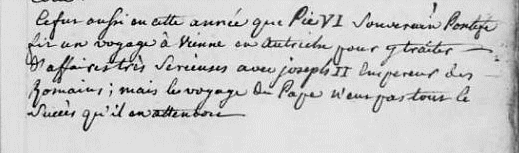 Ce fut aussi en cette année que Pie VI Souverain Pontife
fit un voyage à Vienne en autriche pour y traiter
d'affaires très Serieuses avec joseph II Empereur des
Romains ; mais le voyage du Pape n'eut pas tout le
Succès qu'il en attendoit